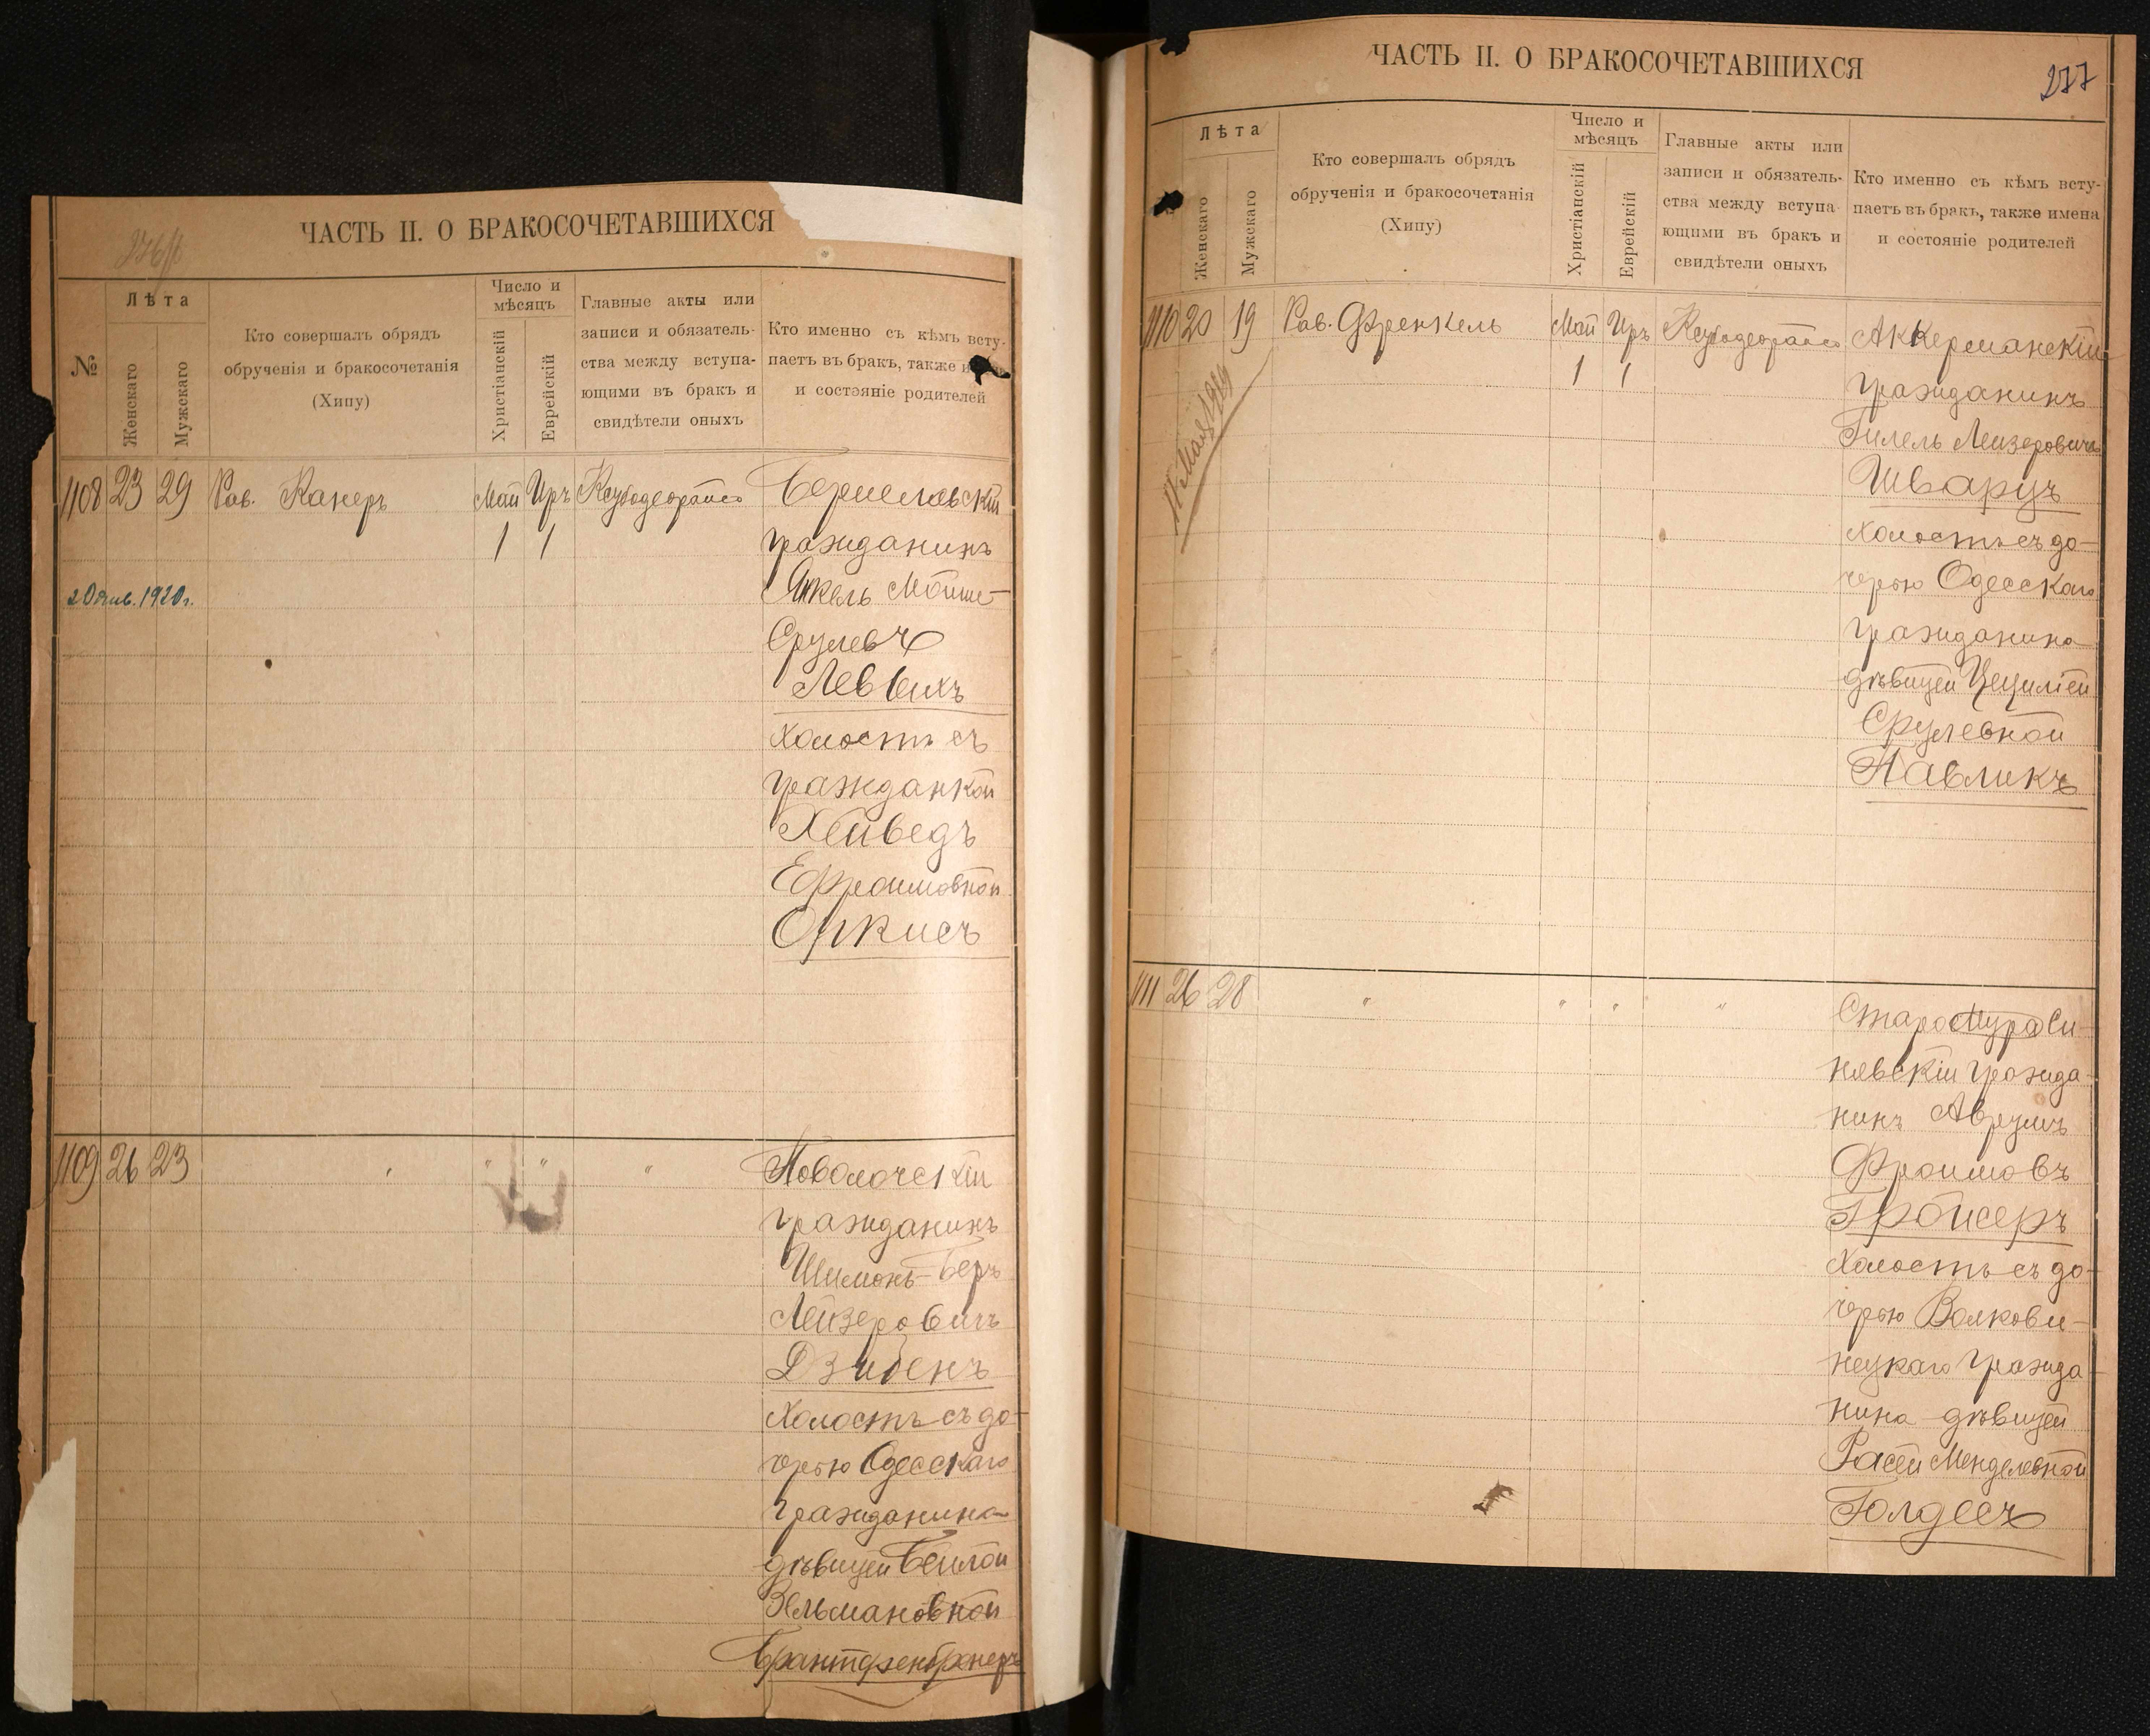 ЧАСТЬ II. О БРАКОСОЧЕТАВШИХСЯ
№
Лѣта
Женскаго
Мужскаго
Кто совершалъ обрядъ
обрученія и бракосочетанія
(Хипу)
Число и
мѣсяцъ
Христіанскій
Еврейскій
Главные акты или
записи и обязатель-
ства между вступа-
ющими въ бракъ и
свидѣтели оныхъ
Кто именно съ кѣмъ всту-
паетъ въ бракъ, также
и состояніе родителей
1108 23 29 Рав. Канеръ Май Иръ
1 1
20 янв. 1920 г.
гражданинъ
Янкель Мойше-
Срулевъ
холостъ съ
гражданкой
Хейведъ
Ефроимовной
Оркисъ
1109 26 23 " " " "
Поволочскій
гражданинъ
Шимонъ-Беръ
Лейзеровичъ
холостъ съ до-
черью Одесскаго
гражданина
дѣвицей Бейлой
Зельмановной
ЧАСТЬ II. О БРАКОСОЧЕТАВШИХСЯ
277
Лѣта
Женскаго
Мужскаго
Кто совершалъ обрядъ
обрученія и бракосочетанія
(Хипу)
Число и
мѣсяцъ
Христіанскій
Еврейскій
Главные акты или
записи и обязатель-
ства между вступа-
ющими въ бракъ и
свидѣтели оныхъ
Кто именно съ кѣмъ всту-
паетъ въ бракъ, также имена
и состояніе родителей
1110 20 19 Рав. Френкель Май Иръ
1 1
Аккерманскій
гражданинъ
Гилель Лейзеровичъ
Шварцъ
холостъ съ до-
черью Одесскаго
гражданина
дѣвицей Цецилией
Срулевной
Павликъ
1111 26 28 " " " "
нявскій гражда-
нинъ Аврумъ
Фроимовъ
Гройсеръ
холостъ съ до-
черью Волкови-
нецкаго гражда-
нина дѣвицей
Расей Менделевной